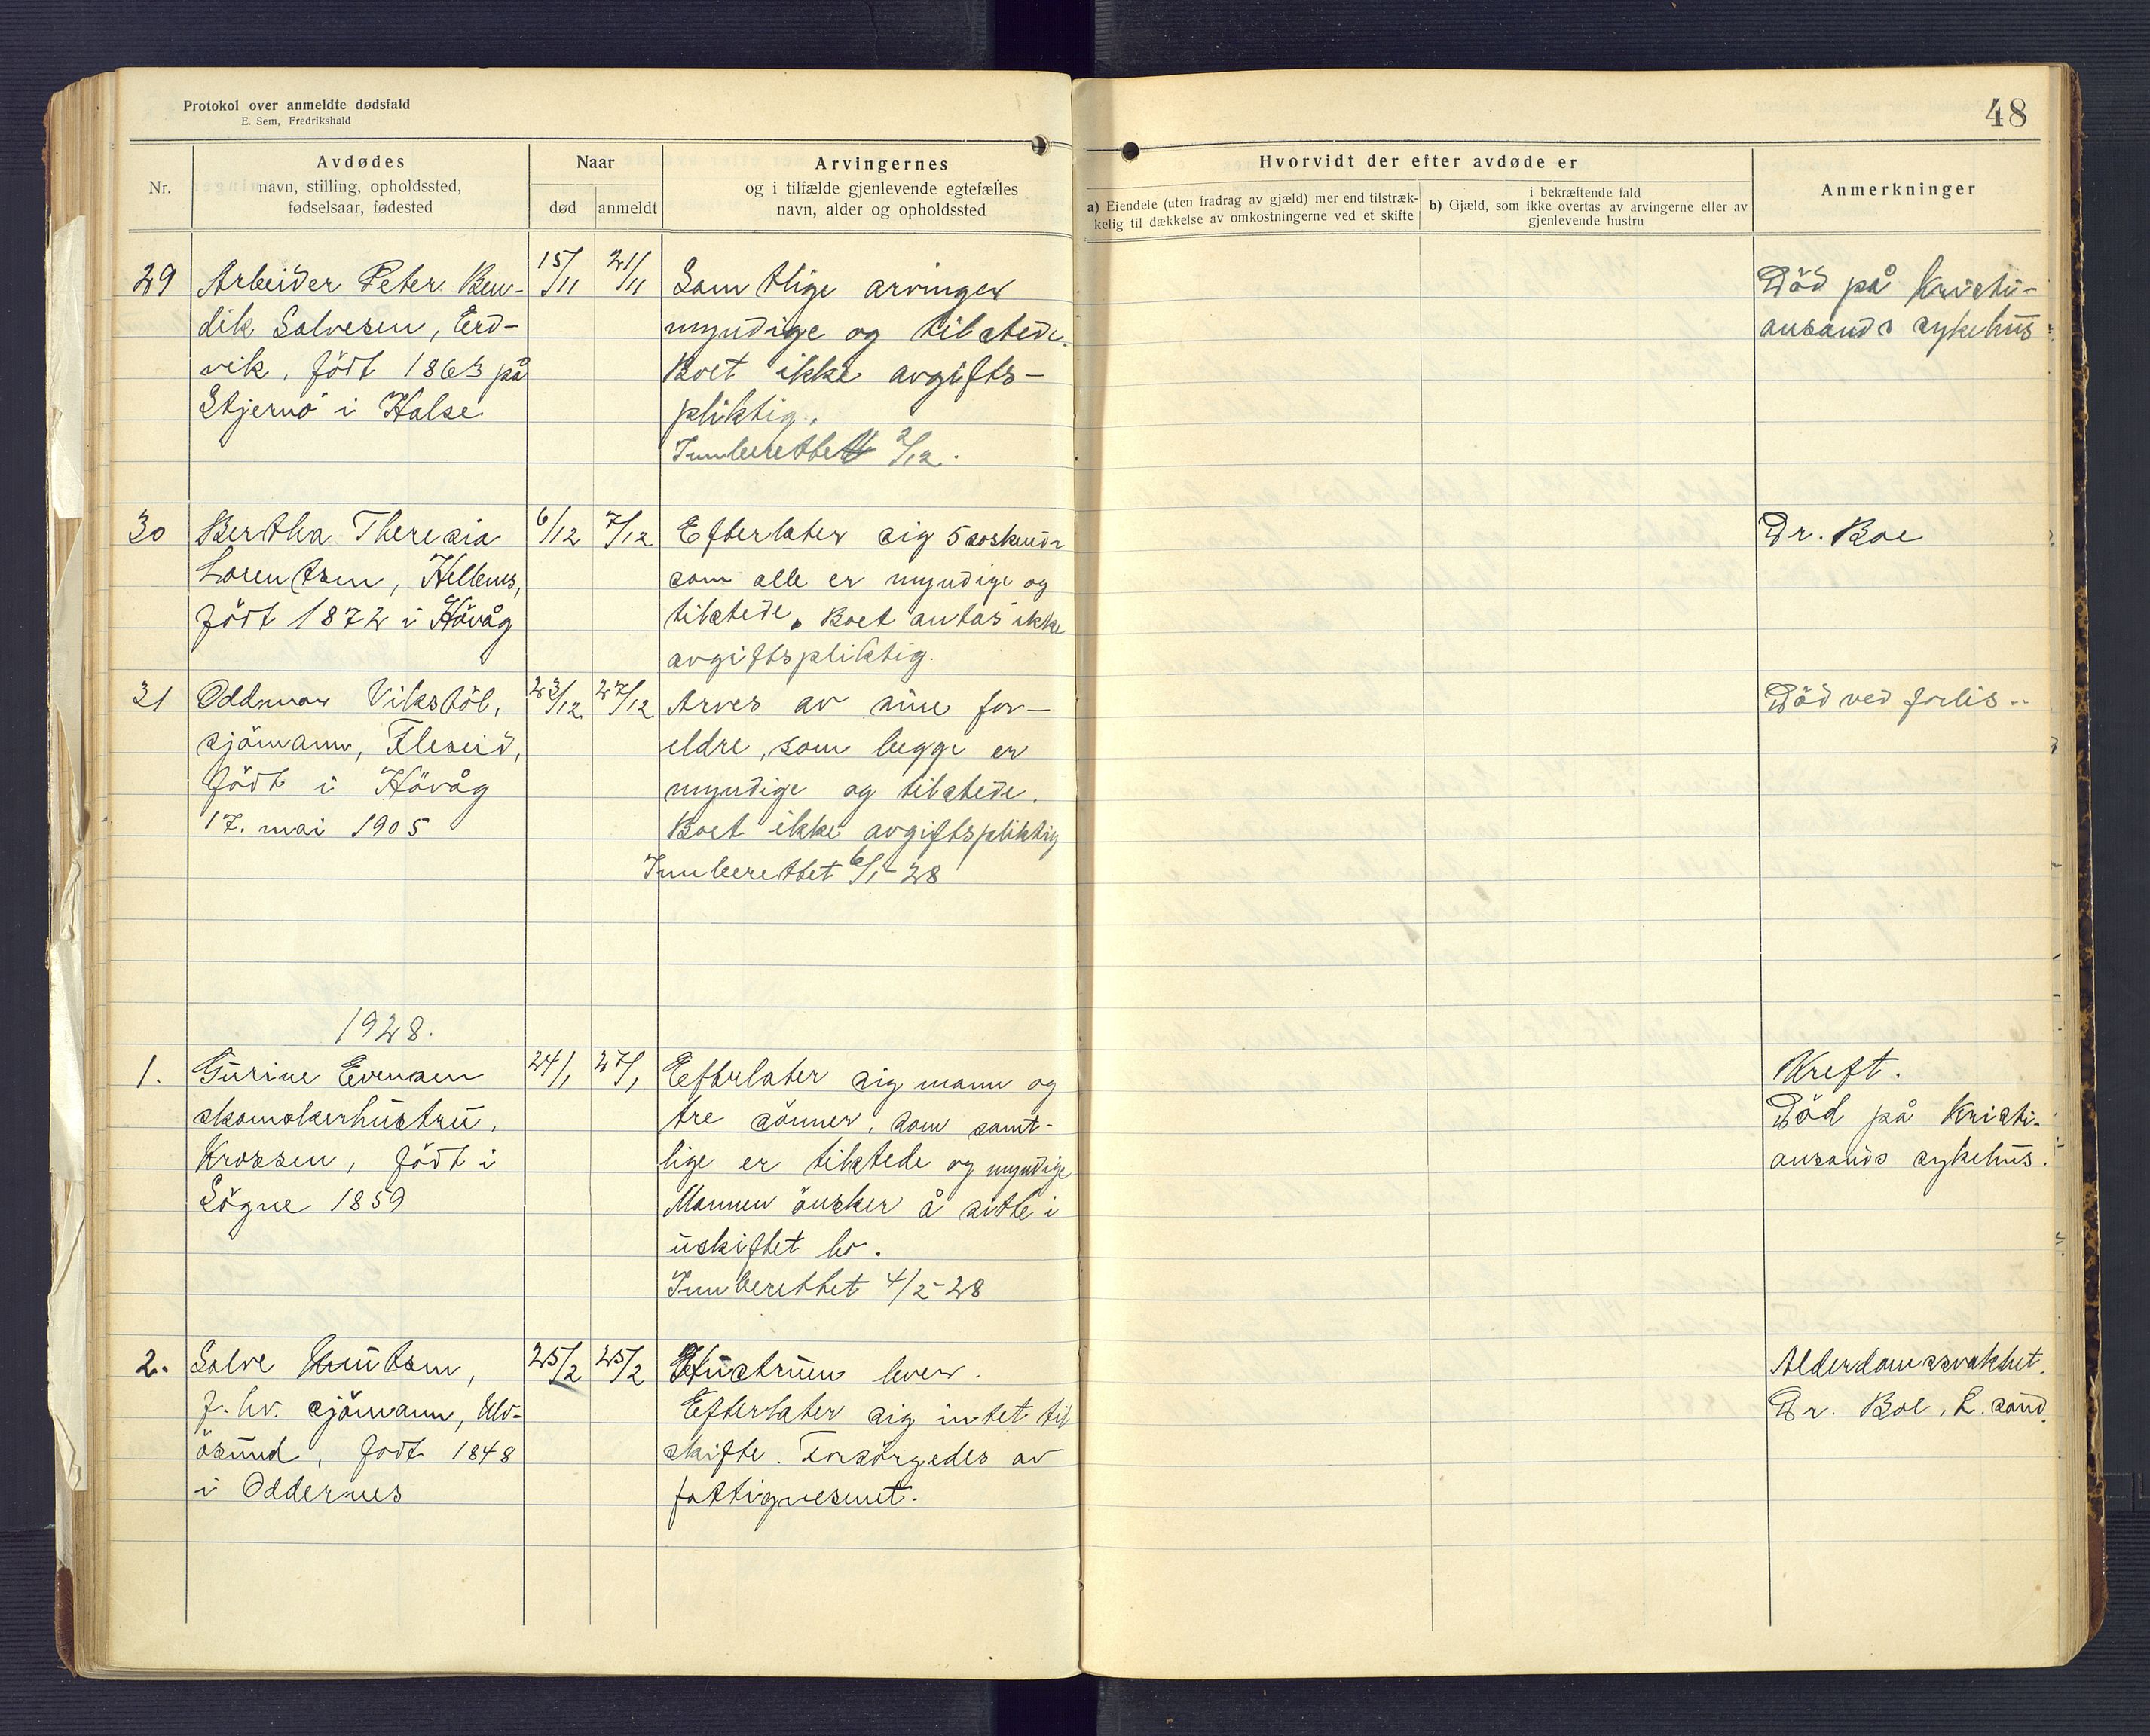 Protokol over anmeldte dødsfald
E. Sem, Fredrikshald
48
Nr.
Avdødes
navn, stilling, opholdssted,
fødselsaar, fødested
Naar
død
anmeldt
Arvingernes
og i tilfælde gjenlevende egtefælles
navn, alder og opholdssted
Hvorvidt der efter avdøde er
a) Eiendele (uten fradrag av gjæld) mer end tilstræk-
kelig til dækkelse av omkostningerne ved et skifte
i bekræftende fald
b) Gjæld, som ikke overtas av arvingerne eller av
gjenlevende hustru
Anmerkninger
29
Arbeider Peter Ben-
dik Salvesen,
vik, födt 1863 på
Stjernö i Halse
15/11
21/11
Samtlige arvinger
myndige og tilstede.
Boet ikke avgifts-
pliktig.
Innberettet 2/12.
Död på Kristi-
ansands sykehus
30
Bertha Theresia
Lorentsen,
födt 1872 i Hövåg
6/12
7/12
Efterlater sig 5 søskende
som alle er myndige og
tilstede. Boet antas ikke
avgiftspliktig.
Dr. Boe
31
Oddmar Vikstöl,
sjömann, Fleseid,
födt i Hövåg
17. mai 1905
23/12
27/12
Arves av sine for-
eldre, som begge er
myndige og tilstede.
Boet ikke avgiftspliktig
Innberettet 6/1-28
Död ved forlis
1928.
1.
Gurine Evensen
skomakerhustru,
Krossen, födt i
Sögne 1859
24/1
27/1
Efterlater sig mann og
tre sönner, som samt-
lige er tilstede og myndige
Mannen önsker å sitte i
uskiftet bo.
Innberettet 4/2-28
Kreft.
Död på Kristi-
ansands sykehus.
2.
Salve Knutsen,
f. hv. sjömann, Ulv-
ösund, født 1848
i Oddernes
25/2
25/2
Hustruen lever.
Efterlater sig intet til
skifte. Forsörgedes av
fattigvesenet.
Alderdomssvakhet.
Dr. Boe, L. sand.